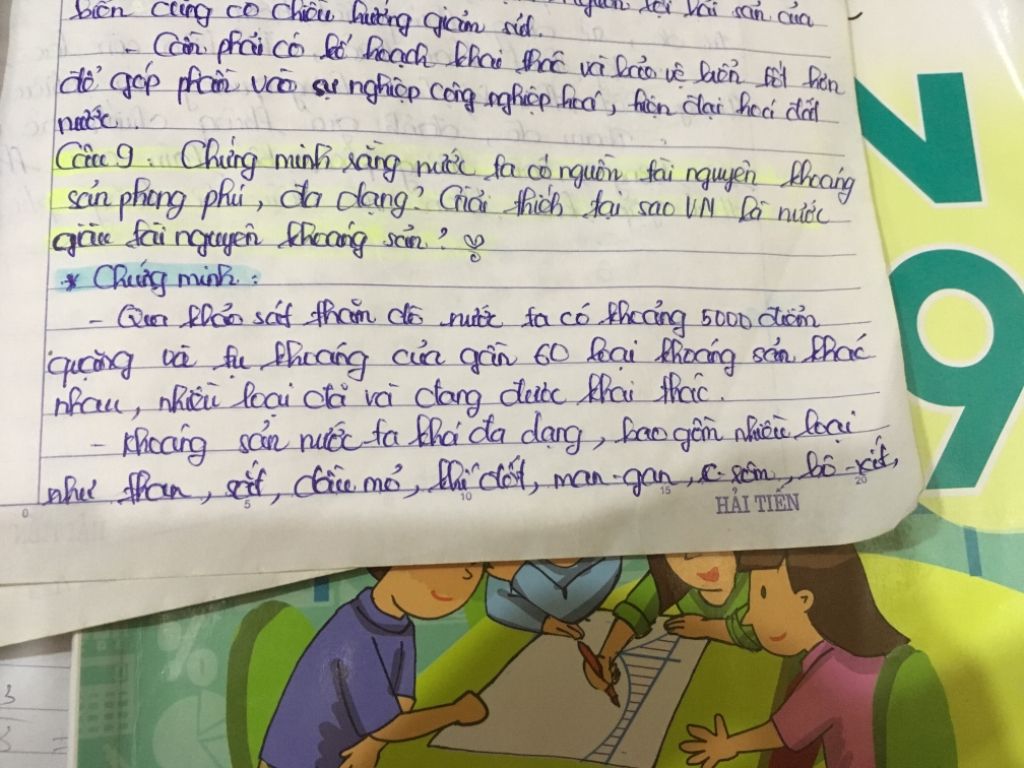 biển cũng có chiều hướng giảm sút.
- Cần phải có kế hoạch khai thác và bảo vệ biển tốt hơn
để góp phần vào sự nghiệp công nghiệp hoá, hiện đại hoá đất
nước.
Câu 9. Chứng minh rằng nước ta có nguồn tài nguyên khoáng
sản phong phú, đa dạng? Giải thích tại sao VN là nước
giàu tài nguyên khoáng sản?
* Chứng minh:
- Qua khảo sát thăm dò nước ta có khoảng 5000 điểm
quặng và tụ khoáng của gần 60 loại khoáng sản khác
nhau, nhiều loại đã và đang được khai thác.
- Khoáng sản nước ta khá đa dạng, bao gồm nhiều loại
như than, sắt, dầu mỏ, khí đốt, man-gan, c-rôm, bô-xít,
0 5 10 15 20
HẢI TIẾN
9